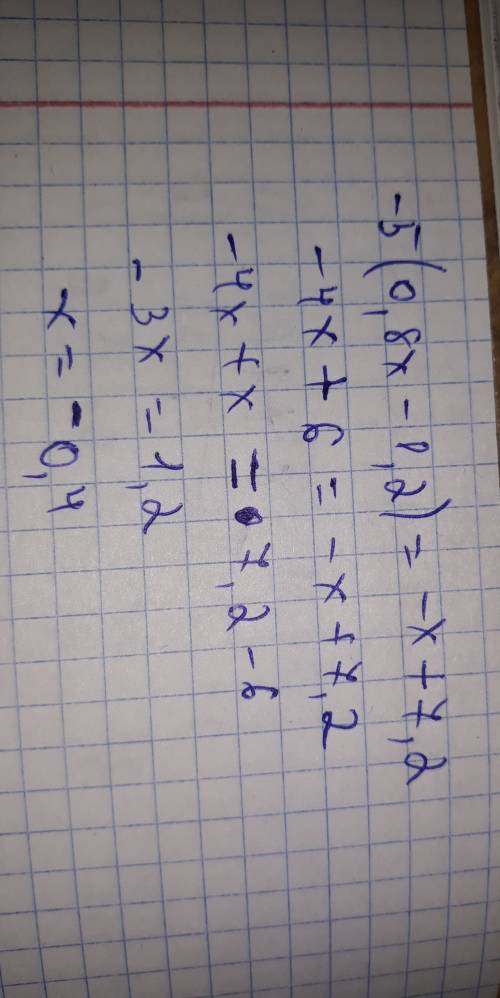 -5(0,8x-1,2)=-x+7,2
-4x+6=-x+7,2
-4x+x=7,2-6
-3x=1,2
x=-0,4